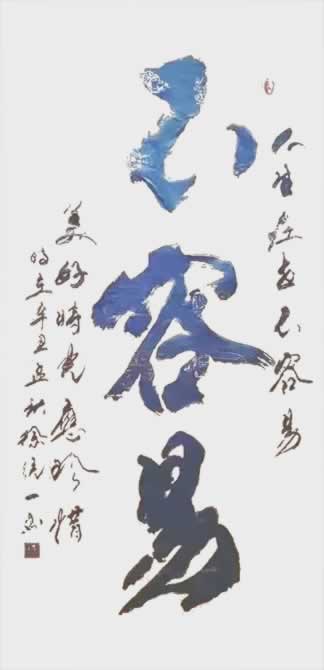 人生在世不容易
不容易
美好時光應珍惜
時在辛丑秋徐統一書